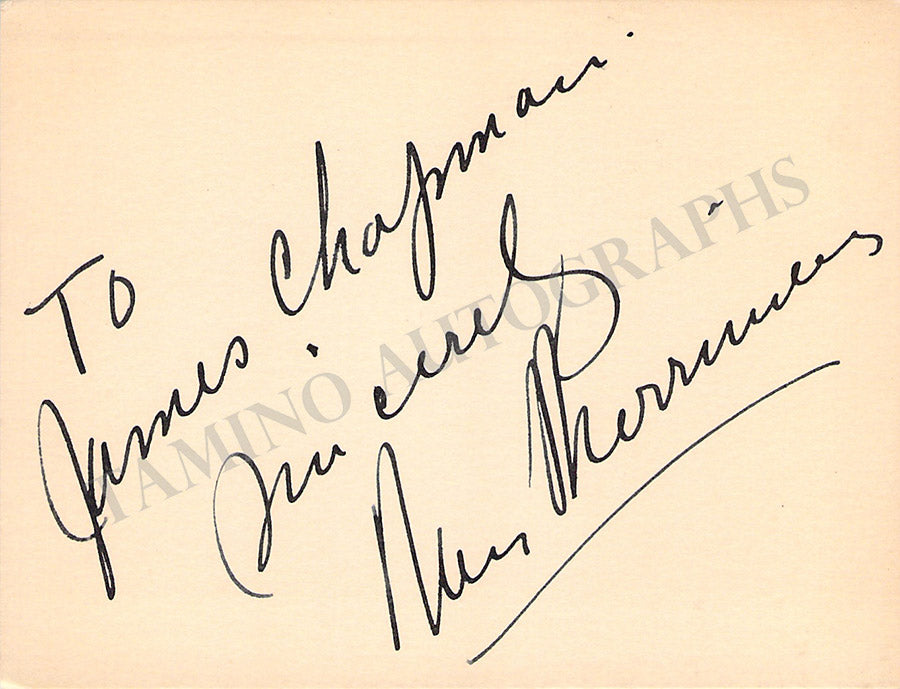 To
James Chapman.
Sincerely
Nan Merriman
TAMINO AUTOGRAPHS